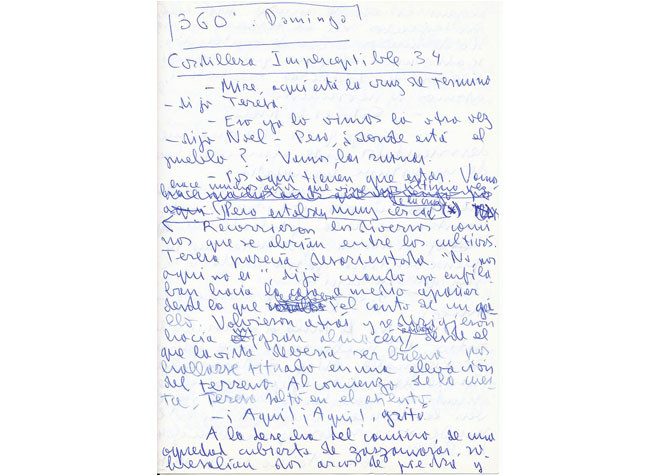 360'. Domingo
Cordillera Imperceptible 34
- Mira, aquí está la cruz de término
- dijo Teresa.
- Eso ya lo vimos la otra vez
- dijo Noel - Pero, ¿dónde está el
pueblo? Vamos, las ruinas.
- Por aquí tienen que estar. Vamos
hace muchos años que vine por última vez
de la cruz
aquí (Pero estaban muy cerca) (*)
Recorrieron los diversos cami
nos que se abrían entre los cultivos.
Teresa parecía desorientada. "No, por
aquí no es", dijo, cuando ya enfila
ban hacia la casa a medio
desde la que el canto de un ga
llo. Volvieron atrás y se dirigieron
hacia gran almacén, desde el
que la vista debería ser buena por
hallarse situado en una elevación
del terreno. Al comienzo de la cues
ta, Teresa saltó en el asiento
- ¡Aquí! ¡Aquí!, gritó
A la derecha del camino, de una
oquedad cubierta de zarzamoras, so
bresalían dos arcos de piedra y